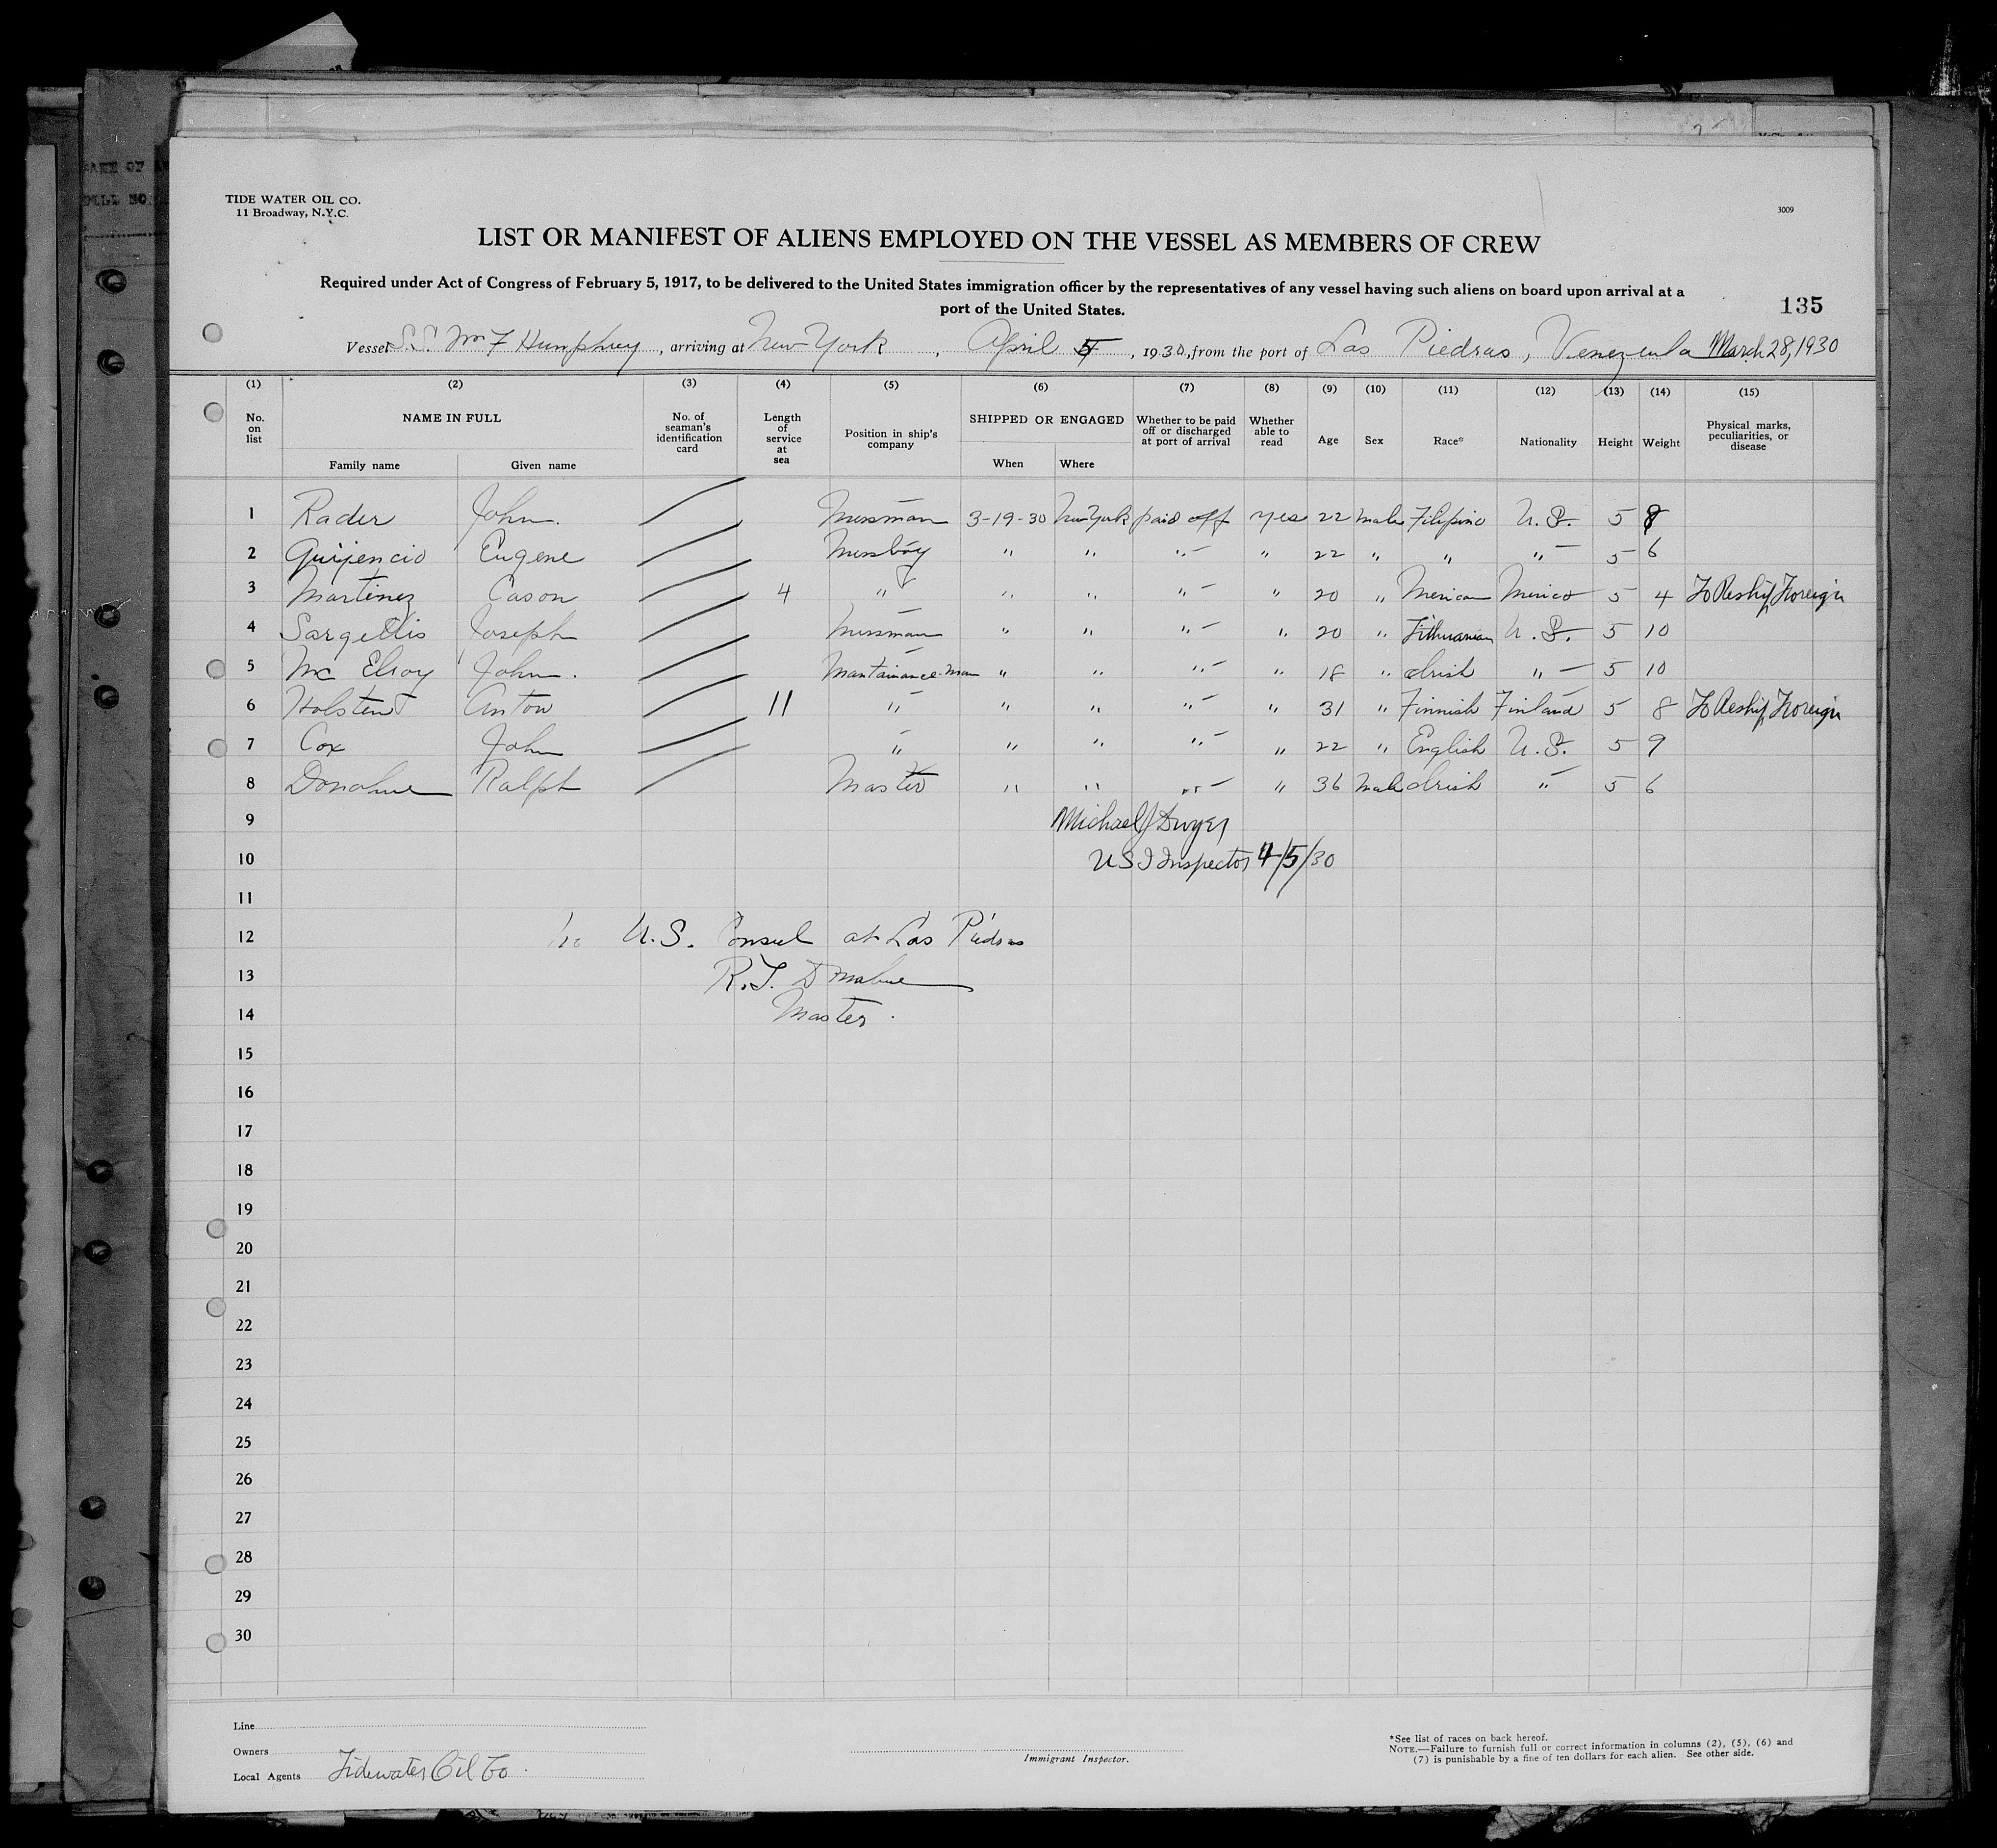 TIDE WATER OIL CO.
11 Broadway, N.Y.C.
3009
LIST OR MANIFEST OF ALIENS EMPLOYED ON THE VESSEL AS MEMBERS OF CREW
Required under Act of Congress of February 5, 1917, to be delivered to the United States immigration officer by the representatives of any vessel having such aliens on board upon arrival at a
port of the United States.
135
Vessel S.S. Wm F Humphrey, arriving at New York, April 5, 1930, from the port of Las Piedras, Venezuela March 28, 1930
(1) (2) (3) (4) (5) (6) (7) (8) (9) (10) (11) (12) (13) (14) (15)
No. on list NAME IN FULL Family name Given name No. of seaman's identification card Length of service at sea Position in ship's company SHIPPED OR ENGAGED When Where Whether to be paid off or discharged at port of arrival Whether able to read Age Sex Race* Nationality Height Weight Physical marks, peculiarities, or disease
1 Rader John. Messman 3-19-30 New York paid off yes 22 male Filipino U.S. 5 8
2 Quijencio Eugene Messboy " " " " 22 " " " 5 6
3 Martinez Cason 4 " " " " " 20 " Mexican Mexico 5 4 To Reship Foreign
4 Sargellis Joseph Messman " " " " 20 " Lithuanian U.S. 5 10
5 Mc Elroy John. Maintainance-Man " " " " 18 " Irish " 5 10
6 Holsten Anton 11 " " " " " 31 " Finnish Finland 5 8 To Reship Foreign
7 Cox John " " " " " 22 " English U.S. 5 9
8 Donahue Ralph Master " " " " 36 Male Irish " 5 6
9 Michael J Dwyer
10 U S I Inspector 4/5/30
11
12 No U.S. Consul at Las Piedras
13 R.T. Donahue
14 Master.
15
16
17
18
19
20
21
22
23
24
25
26
27
28
29
30
Line
Owners
Local Agents Tidewater Oil Co.
Immigrant Inspector.
*See list of races on back hereof.
NOTE.—Failure to furnish full or correct information in columns (2), (5), (6) and
(7) is punishable by a fine of ten dollars for each alien. See other side.